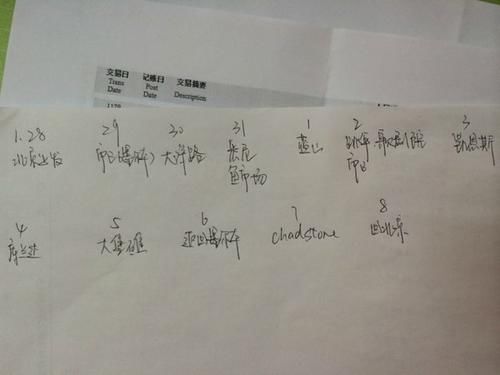 交易日 记账日 交易摘要
Trans Post Description
Date Date
1.28 29 30 31 1 2 3
北京出发 市区(墨尔本) 大洋路 悉尼 蓝山 歌剧院 凯恩斯
鱼市场 市区
4 5 6 7 8
库兰达 大堡礁 返回墨尔本 chadstone 回北京